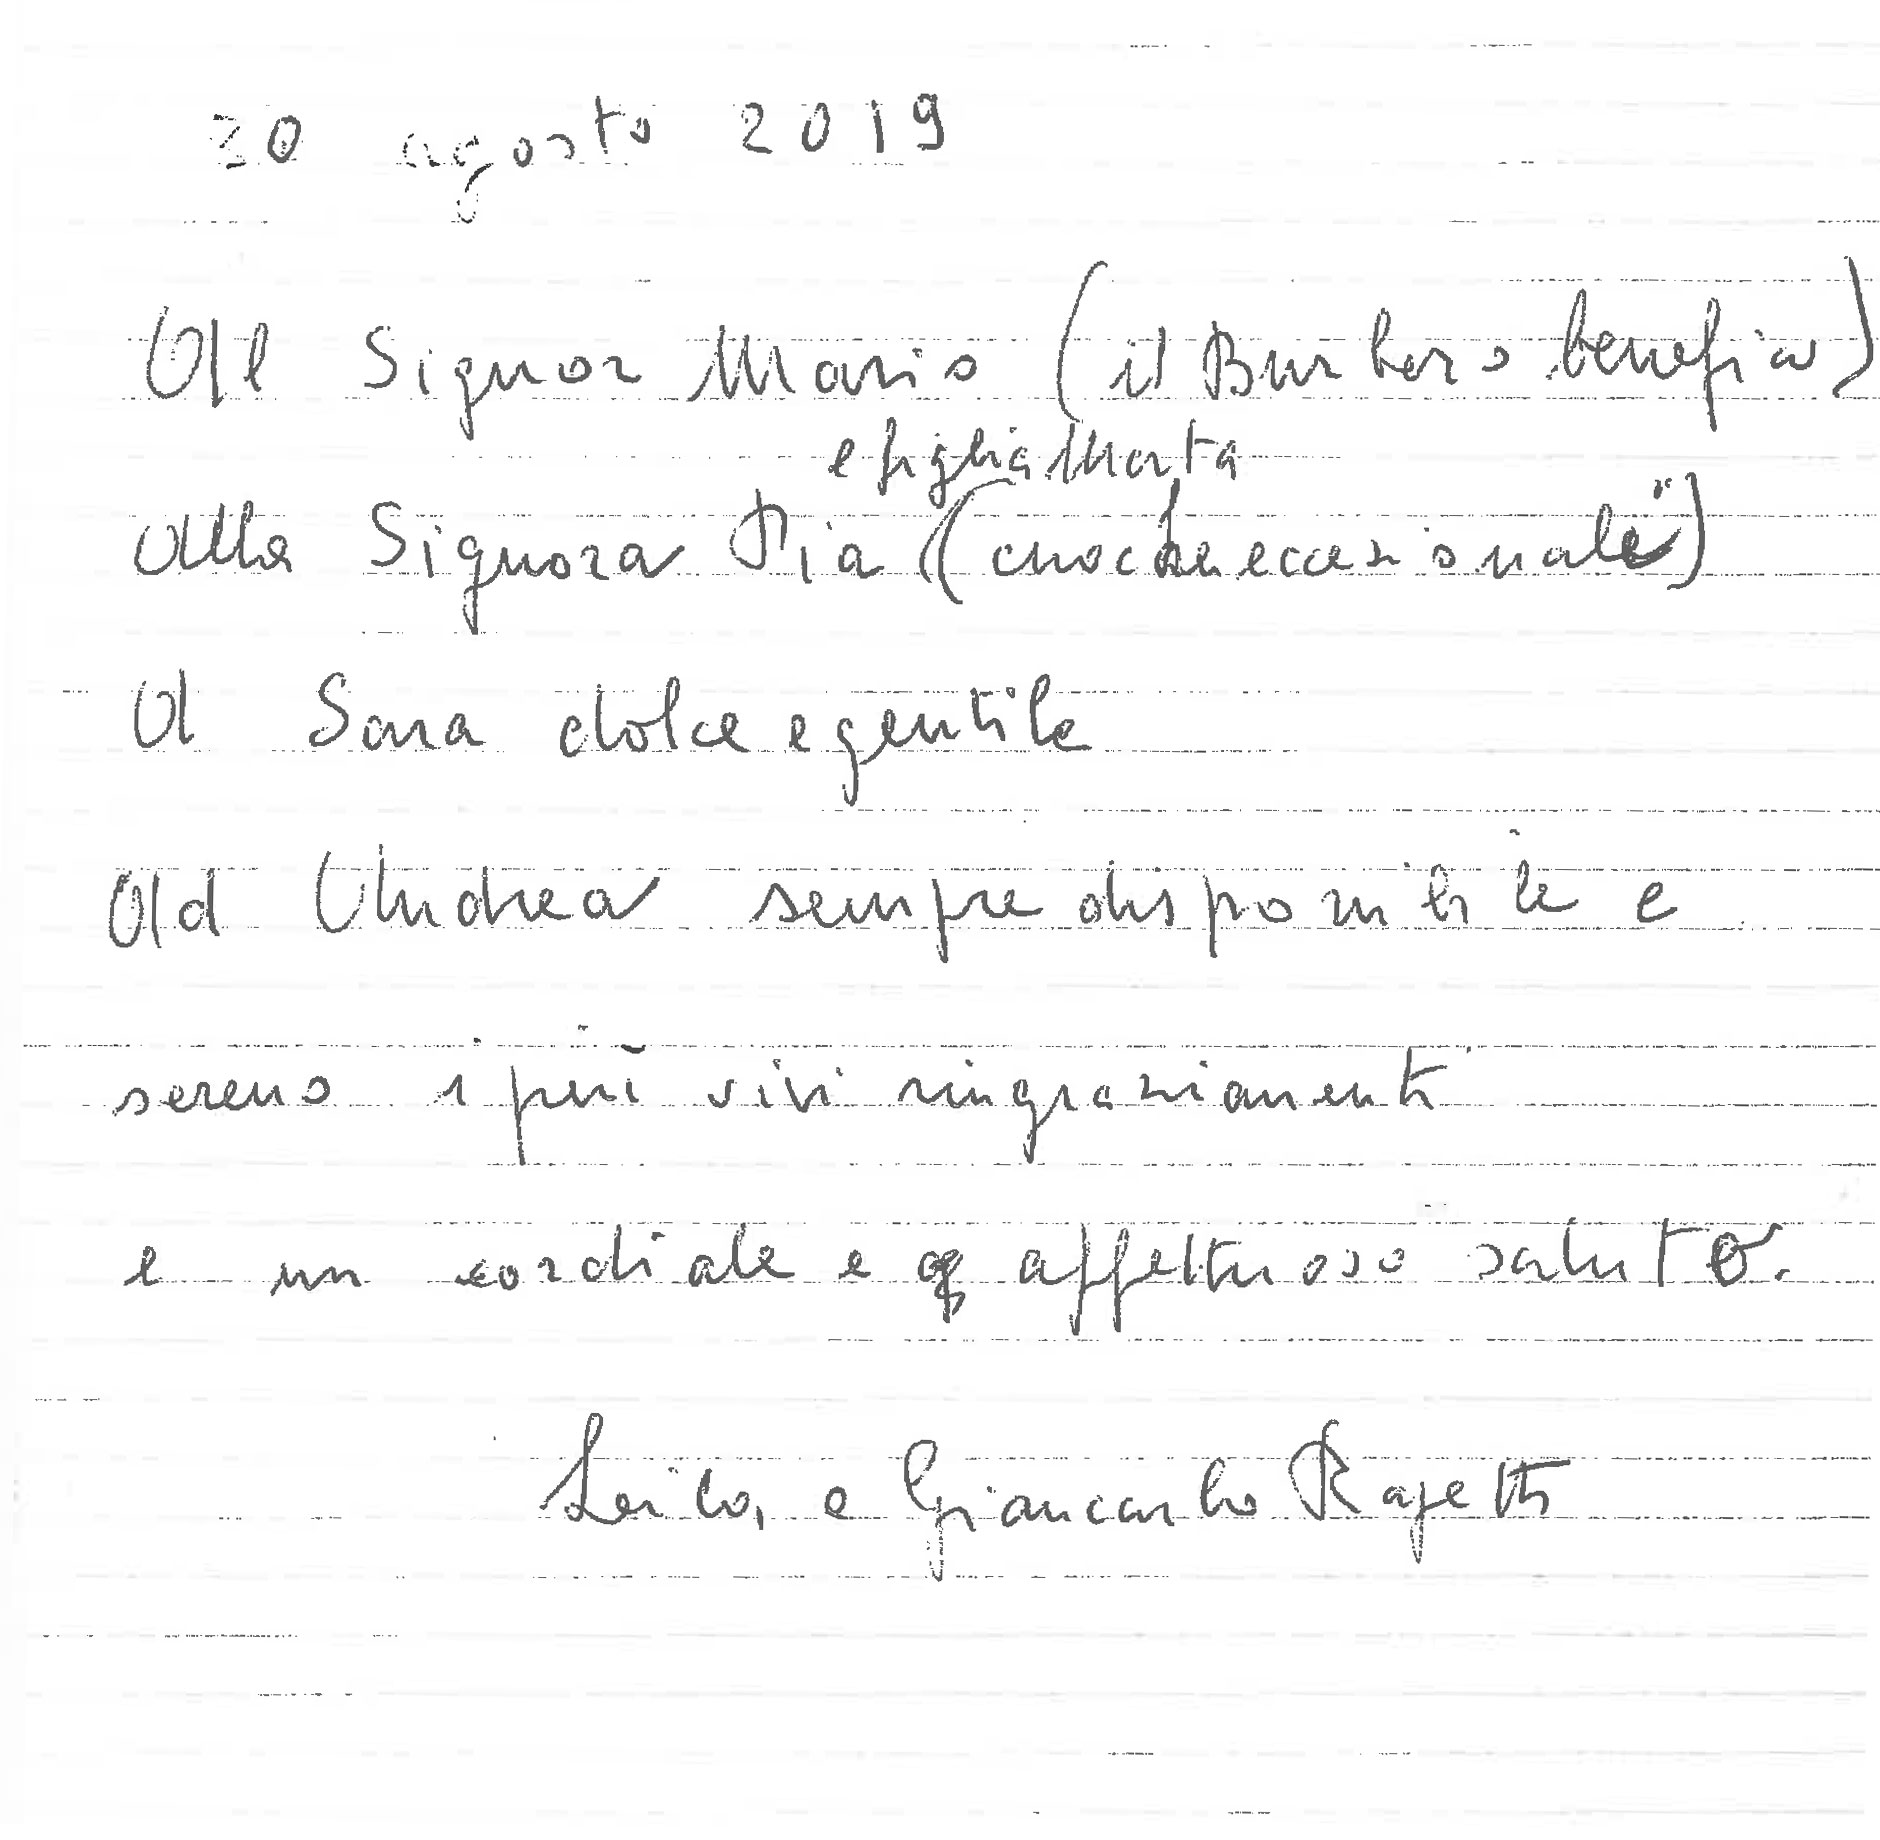 30 agosto 2019
Al Signor Mario (il Burbero benefico)
e figlia Marta
Alla Signora Pia (cuoche eccezionali)
A Sara dolce e gentile
Ad Andrea sempre disponibile e
sereno i più vivi ringraziamenti
e un cordiale e affettuoso saluto.
e Giancarlo Rapetti